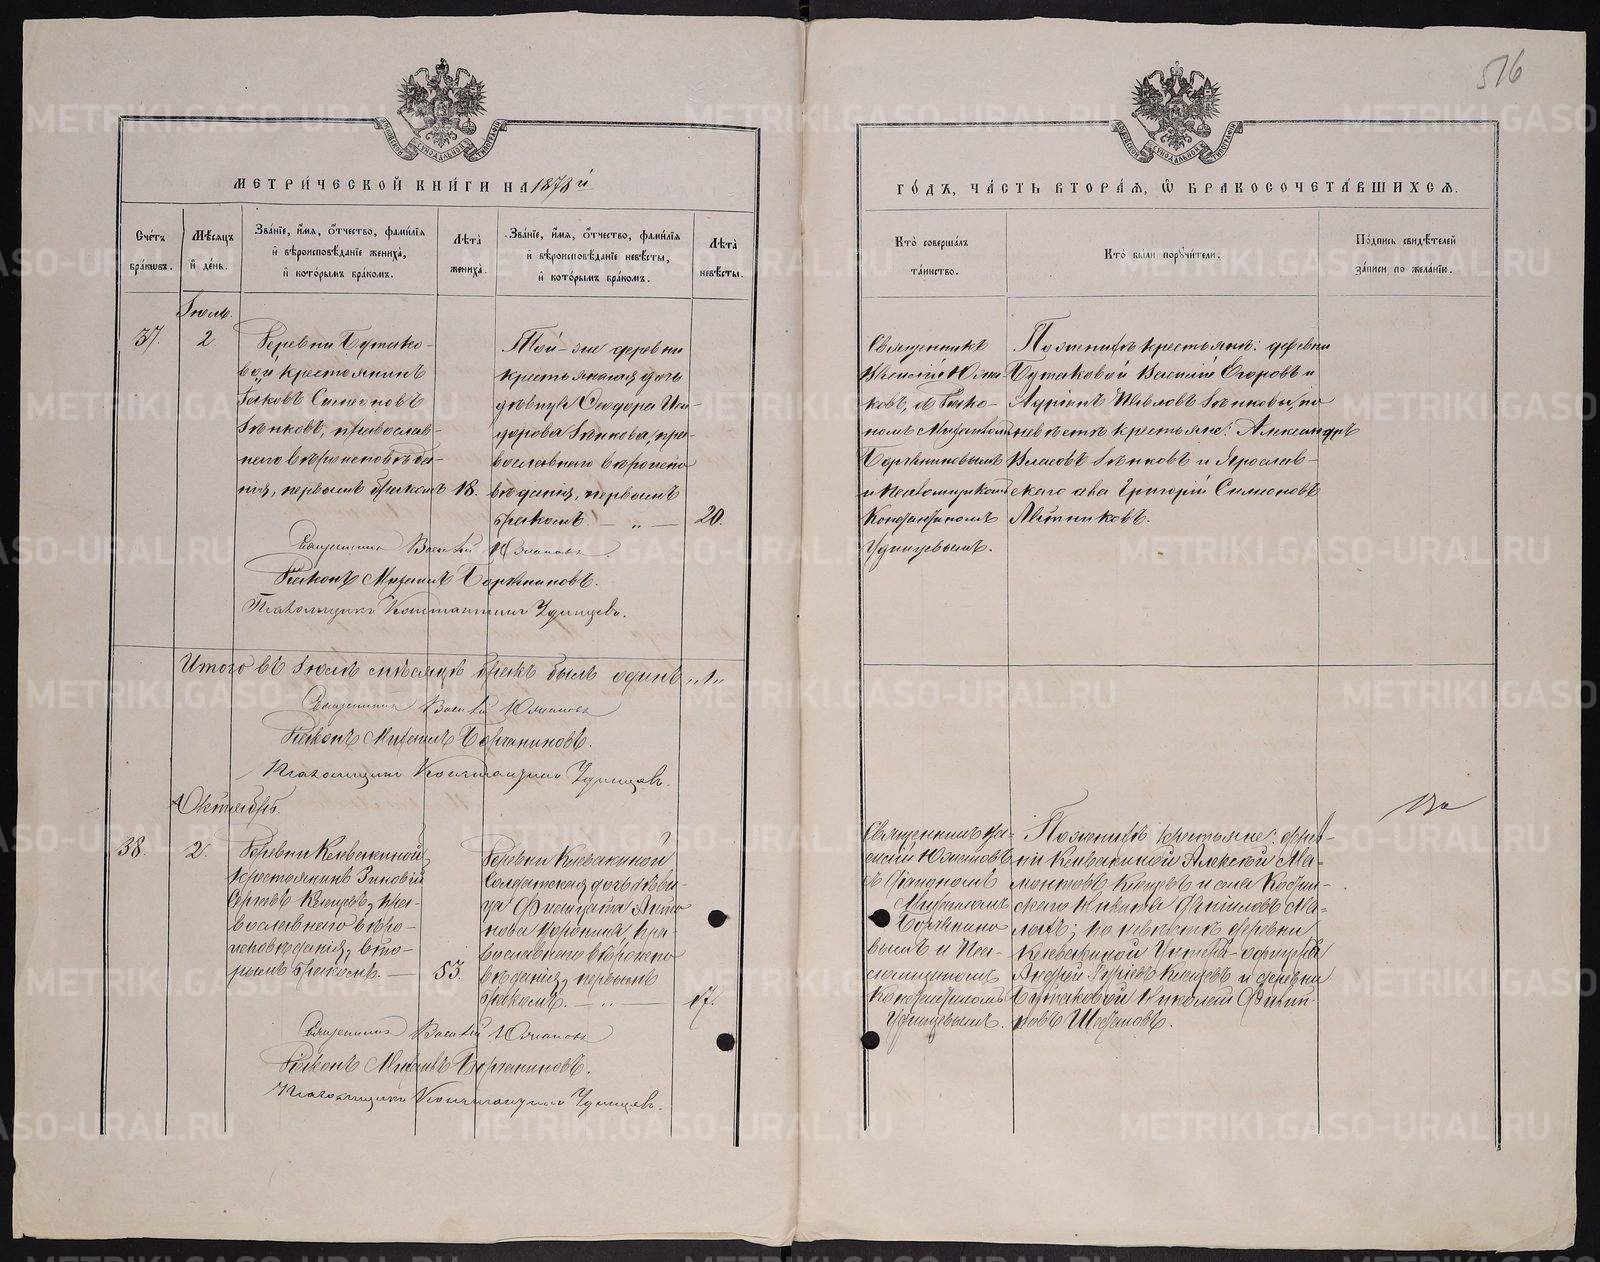 576
МЕТРИЧЕСКОЙ КНИГИ НА 1878 й
Счетъ браковъ.
Мѣсяцъ и день.
Званіе, имя, отчество, фамилія и вѣроисповѣданіе жениха, и которымъ бракомъ.
Лѣта жениха.
Званіе, имя, отчество, фамилія и вѣроисповѣданіе невѣсты, и которымъ бракомъ.
Лѣта невѣсты.
Іюль.
37.
2
Деревни Бутако-
вой крестьянинъ
Іаковъ Симеоновъ
Пѣнковъ, православ-
наго вѣроисповѣда-
нія, первымъ бракомъ
18.
Той-же деревни
крестьянская дочь
дѣвица Ѳеодора Иси-
дорова Пѣнкова, пра-
вославнаго вѣроиспо-
вѣданія, первымъ
бракомъ. — „ —
20.
Священникъ Василій Южаковъ
Діаконъ Михаилъ Боржениновъ.
Псаломщикъ Константинъ Удинцевъ.
Итого въ Іюлѣ мѣсяцѣ бракъ былъ одинъ „1„
Священникъ Василій Южаковъ
Діаконъ Михаилъ Боржениновъ.
Псаломщикъ Константинъ Удинцевъ.
Октябрь.
38.
2.
Деревни
крестьянинъ Зиновій
Сергѣевъ Клещевъ, пра-
вославнаго вѣро-
исповѣданія, вто-
рымъ бракомъ. —
53.
Деревни
Солдатская дочь дѣви-
ца
нова Коронина, пра-
вославнаго вѣроиспо-
вѣданія, первымъ
бракомъ. — „ —
17.
Священникъ Василій Южаковъ
Діаконъ Михаилъ Боржениновъ.
Псаломщикъ Константинъ Удинцевъ.
ГОДЪ, ЧАСТЬ ВТОРАЯ, Ѡ БРАКОСОЧЕТАВШИХСЯ.
Кто совершалъ таинство.
Кто были поручители.
Подпись свидѣтелей записи по желанію.
Священникъ
Василій Южа-
ковъ, съ Діако-
номъ Михаиломъ
Боржениновымъ
и Псаломщикомъ
Константиномъ
Удинцевымъ.
По женихѣ крестьяне: деревни
Бутаковой Василій Егоровъ и
Адріанъ Іовлевъ Пѣнковы, по
невѣстѣ крестьяне: Александръ
Власовъ Пѣнковъ и Ярослав-
скаго села Григорій Симеоновъ
Лѣтниковъ.
Священникъ Ва-
силій Южаковъ
съ Діакономъ
Михаиломъ
Борженино
вымъ и Пса-
ломщикомъ
Константиномъ
Удинцевымъ.
По женихѣ крестьяне: дерев-
ни Алексѣй Ма-
монтовъ Клещевъ и села
скаго
по невѣстѣ деревни
Унтеръ-офицеръ
Андрей Клещевъ и деревни
Бутаковой Николай Филип-
повъ